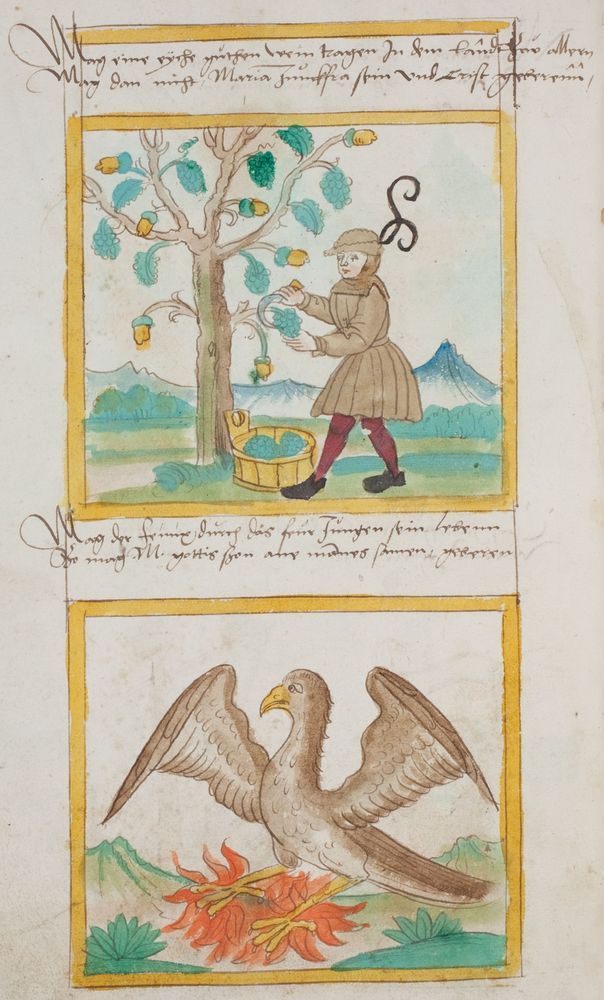 Mag eine eyche guthen wein tragen In dem landt
Mag dan nicht Maria Junckfra sein vnd Crist geberenn,
Mag der fenix durch das feur Jungen sein lebenn
So mag M. gottis son ane mannes samen, geberen